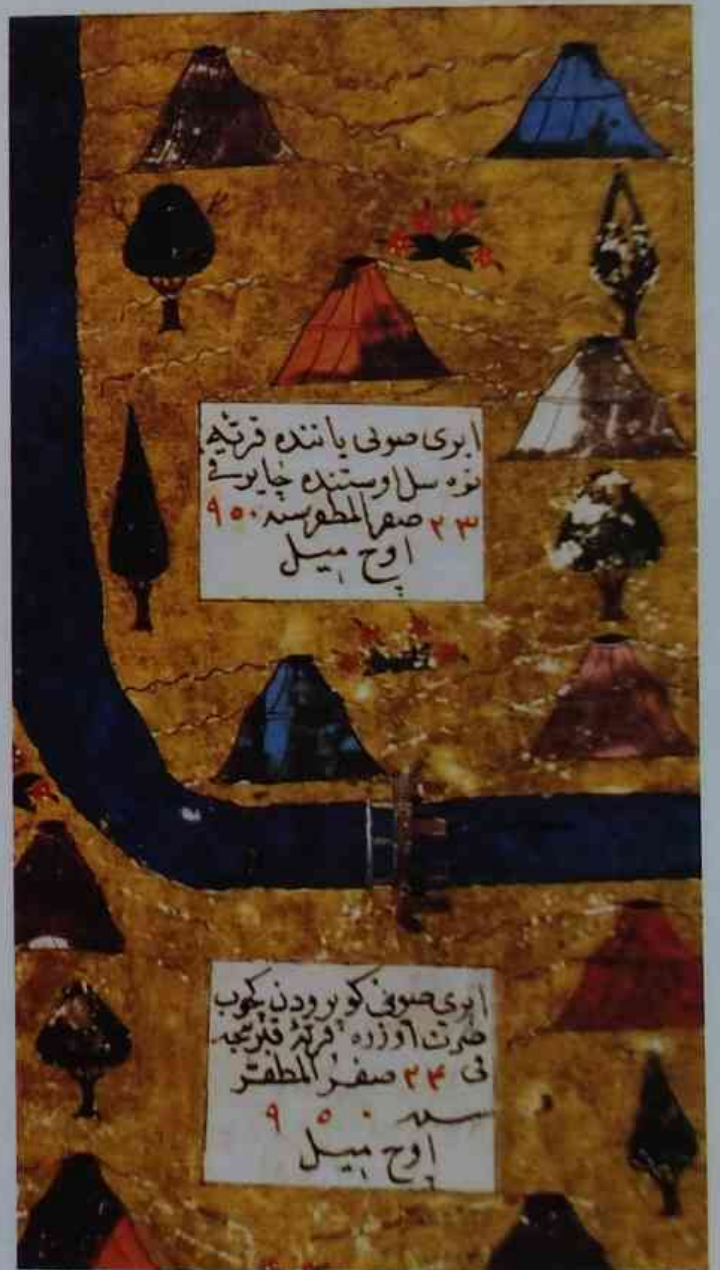 ابری صوئی یاننده قرتۀ
توه سل اوستنده چایر فی
٢٣ صفر المظفر سنه ٩٥٠
اوچ میل
ابری صوئی کوپرودن کچوب
صرت اوزره قرتۀ
فی ٢٤ صفر المظفر
سنه ٩٥٠
اوچ میل